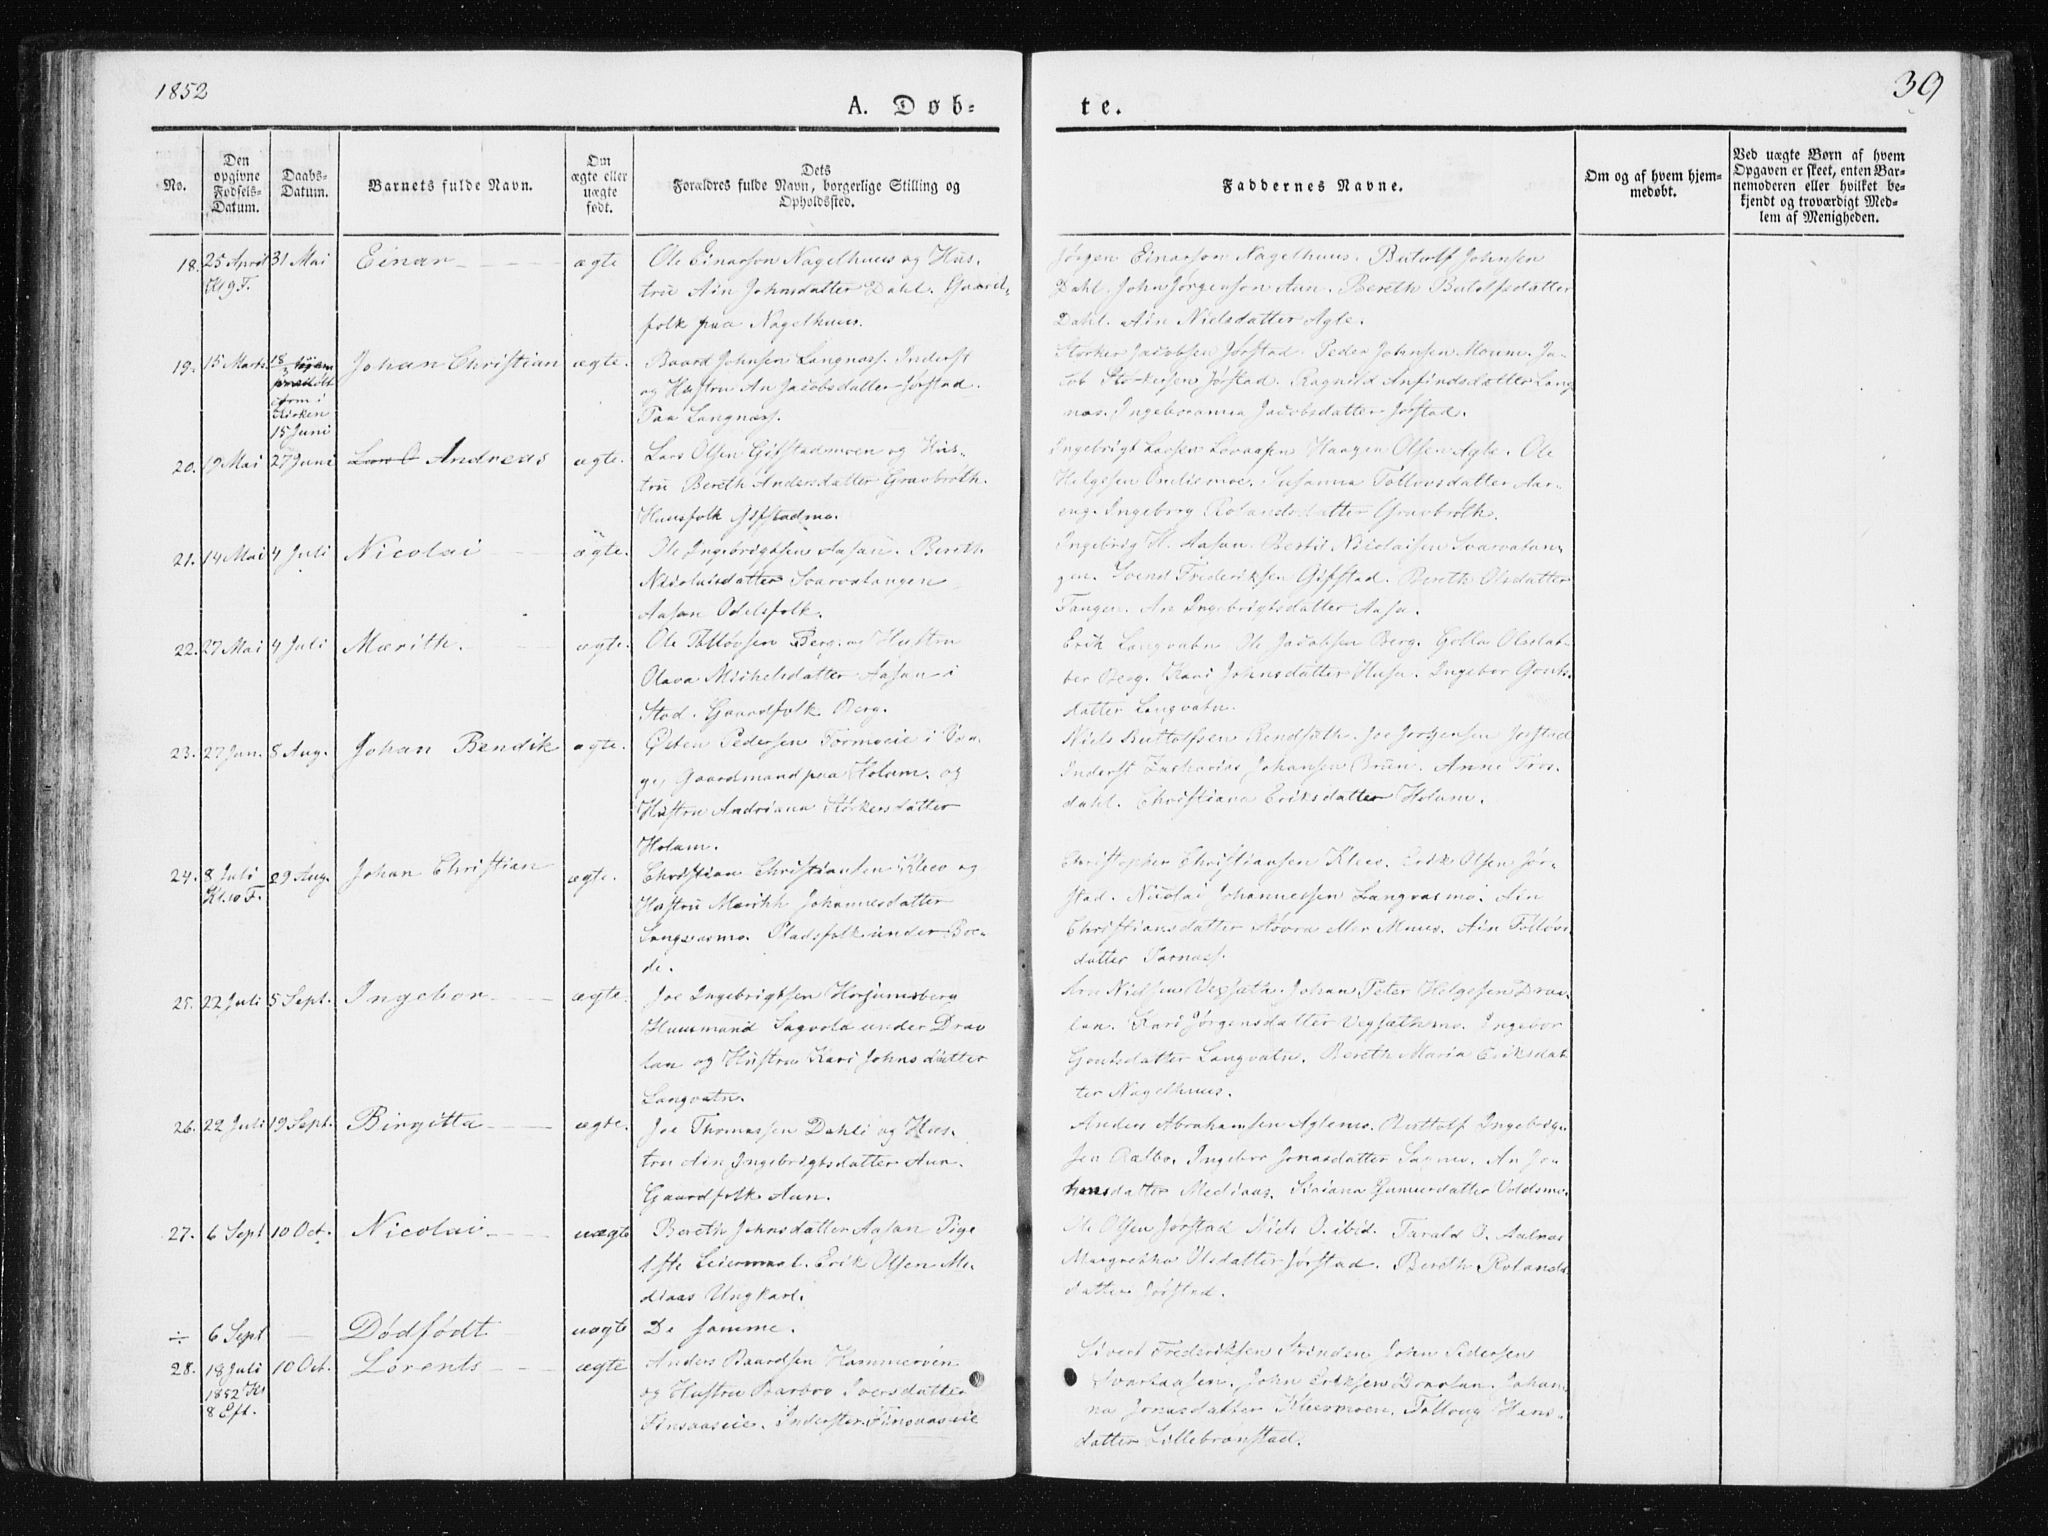 1852
A. Døb-
te.
39
No.
Den
opgivne
Fødsels-
Datum.
Daabs-
Datum.
Barnets fulde Navn.
Om
ægte eller
uægte
født.
Dets
Forældres fulde Navn, borgerlige Stilling og
Opholdssted.
Faddernes Navne.
Om og af hvem hjem-
medøbt.
Ved uægte Børn af hvem
Opgaven er skeet, enten Bar-
nemoderen eller hvilket be-
kjendt og troværdigt Med-
lem af Menigheden.
18. 25 April 31 Mai Einar ægte
Kl 9 F.
Ole Einarson Nagelhuus og Hus-
tru Ain Johnsdatter Dahl. Gaard-
folk paa Nagelhuus.
Jørgen Einarson Nagelhuus. Butolf Johnsen
Dahl. John Jørgenson Aun. Bereth Butolfsdatter
Dahl. Ain Nielsdatter Agle.
19. 15 Marts 18/3 Johan Christian ægte.
i
Kirken
15 Juni
Baard Johnsen Langnæss. Inderst
og Hustru An Jacobsdatter Jørstad
Paa Langnæss.
Storker Jacobsen Jørstad. Peder Johnsen Moum. Ja-
cob Storkersen Jørstad. Ragnild Anfindsdatter Lang
næs. Ingeboranna Jacobsdatter Jørstad.
20. 19 Mai 27 Juni Andreas ægte.
Lars Olsen Gifstadmoen og Hus-
tru Bereth Andersdatter Gravbrøth.
Huusfolk Gifstadmo.
Ingebrigt Larsen Haagen Olsen Agle. Ole
Helgesen Susanna Tollovsdatter Aar-
eng. Ingeborg Rolandsdatter Gravbrøth.
21. 14 Mai 4 Juli Nicolai ægte.
Ole Ingebrigtsen Aasan. Bereth
Nicolaisdatter Svarvatangen
Aasan Odelsfolk.
Ingebrig H. Aasan. Bertil Nicolaisen Svarvatan-
gen. Svend Frederiksen Gifstad. Bereth Olsdatter
Tangen. An Ingebrigtsdatter Aasa.
22. 27 Mai 4 Juli Mærith. ægte.
Ole Tollovsen Berg. og Hustru
Olava Michelsdatter Aasan i
Stod. Gaardfolk Berg.
Erik Langvatn. Ole Jacobsen Berg. Golla Olsdat-
ter Berg. Kari Johnsdatter Husa. Ingebor
datter Langvatn.
23. 27 Jun. 8 Aug. Johan Bendik ægte.
Østen Pedersen Formoeie i
Gaardmand paa Holum. og
Hustru Andriana Storkersdatter
Holum.
Niels Joe Jørgensen Jørstad
Inderst Zacharias Johansen Bruen. Anne
dahl. Christiana Eriksdatter Holum.
24. 8 Juli 29 Aug. Johan Christian ægte.
Kl. 10 F.
Christian Christiansen Kleev og
Hustru Merith Johannesdatter
Langvasmo. Pladsfolk under Bre-
de.
Christopher Christiansen Kleev. Erik Olsen Jør-
stad. Nicolai Johannessen Langvasmo. Ain
Christiansdatter eller Muus. Ain Tolløvs
datter
25. 22 Juli 5 Sept. Ingebor ægte.
Joe Ingebrigtsen Horjumsberg
Huusmand Sagvola under Drav
lan og Hustru Kari Johnsdatter
Langvatn.
Arn Nielsen Vegsæth. Johan Peter Helgesen Drav-
lan. Kari Jørgensdatter Vegsæthmo. Ingebor
Langvatn. Bereth Maria Eriksdat
ter Nagelhuus.
26. 22 Juli 19 Sept. Birgitta ægte.
Joe Thomassen Dahle og Hus-
tru Ain Ingebrigtsdatter Aun.
Gaardfolk Aun.
Anders Abrahamsen Aglemo. Ingebrig-
sen Ingebor Jonasdatter Sagmo. An Jo-
hansdatter Mediaas. Gunnersdatter Voldsmo.
27. 6 Sept 10 Oct. Nicolai uægte
Bereth Johnsdatter Aasan Pige
1ste Leiermaal. Erik Olsen Me-
diaas Ungkarl.
Ole Olsen Jørstad Niels O. ibid. Tarald O. Aalnæs
Margretha Olsdatter Jørstad. Bereth Rolands
datter Jørstad.
÷ 6 Sept — Dødfødt uægte De samme.
28. 18 Juli 10 Oct. Lorents ægte
1852 Kl
8 Eft.
Anders Baardsen Hammerven
og Hustru Barbro Iversdatter
Finsaaseie. Inderster Finsaaseie
Sivert Frederiksen Strinden John Pedersen
Svartaasen. John Eriksen Dravlan. Johan-
na Jonasdatter Kleermoen. Tollovg Hans-
datter Lillebrænstad.